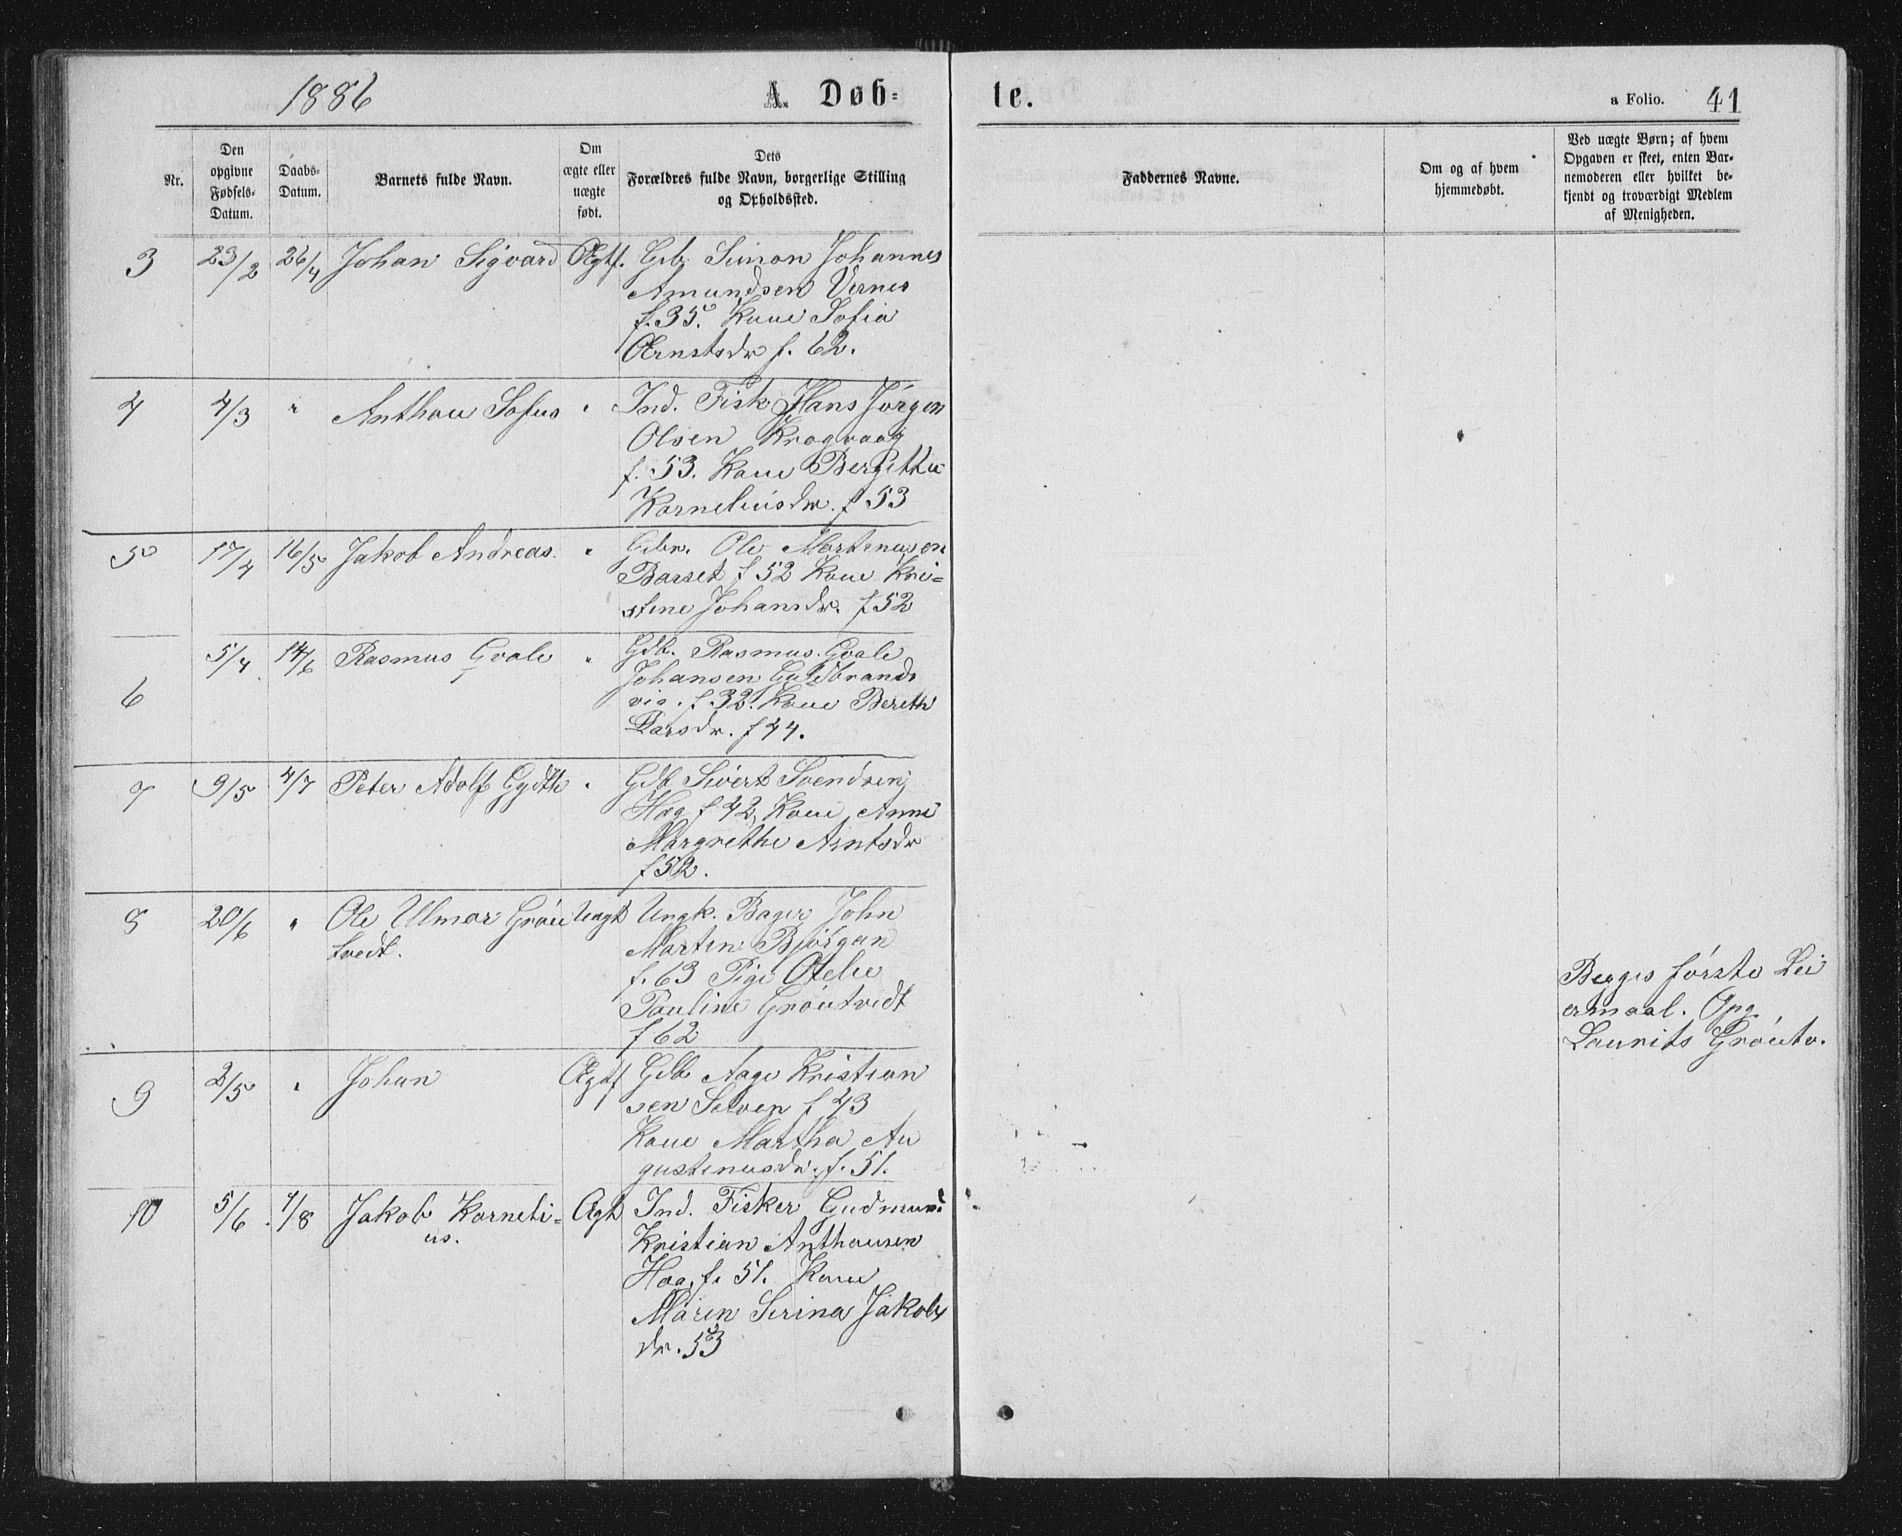 1886 A. Døb= te. a Folio. 41
Nr.
Den opgivne Fødsels-Datum.
Daabs-Datum.
Barnets fulde Navn.
Om ægte eller uægte født.
Dets Forældres fulde Navn, borgerlige Stilling og Opholdssted.
Faddernes Navne.
Om og af hvem hjemmedøbt.
Ved uægte Børn; af hvem
Opgaven er skeet, enten Bar-
nemoderen eller hvilket be-
kjendt og troværdigt Medlem
af Menigheden.
3 23/2 26/4 Johan Sigvard Ægtf. Gdb Simon Johannes
Amundsen Vernes
f. 35. Kone Sofia
Ærnstsdr f. 62.
4 4/3 " Anthon Sofus " Ind. Fisk Hans Jörgen
Olsen Krogvaag
f. 53. Kone Bergitha
Kornelius dr. f 53
5 17/4 16/5 Jakob Andreas " Gbr. Ole Martinusen
Barset f 52 Kone Kri=
stine Johansdr. f 52
6 5/4 14/6 Rasmus Gvale " Gdb. Rasmus Gvale
Johansen Guldbrands
vig. f. 32. Kone Bereth
Larsdr. f 44.
7 9/5 4/7 Peter Adolf Gydth " Gdb Sivert Svendsen
Hag f 42, Kone Anne
Margrethe Arntsdr
f 52.
8 20/6 " Ole Ulmar Gröntvedt. Uægt Ungk. Bager John
Martin Björgan
f. 63 Pige Otelie
Pauline Gröntvedt
f 62
Begges förste Lei
ermaal. Opg.
Laurits Gröntv.
9 2/5 " Johan Ægtf Gdb Aage Kristian
sen Selven f 43
Kone Martha Au
gustinusdr. f. 51.
10 5/6 1/8 Jakob Korneli=
us. Ægt Ind. Fisker Gudmun
Kristian Anthonsen
Hag, f. 51. Kone
Maren Serina Jakobs
dr. 53